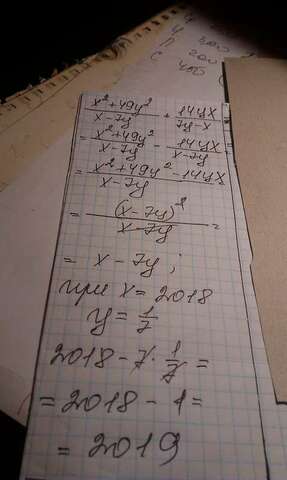 x²+49y²/x-7y + 14yx/7y-x =
= x²+49y²/x-7y - 14yx/x-7y =
= x²+49y²-14yx/x-7y
= (x-7y)²/x-7y =
= x-7y;
при x = 2018
y = 1/7
2018 - 7 · 1/7 =
= 2018 - 1 =
= 2019